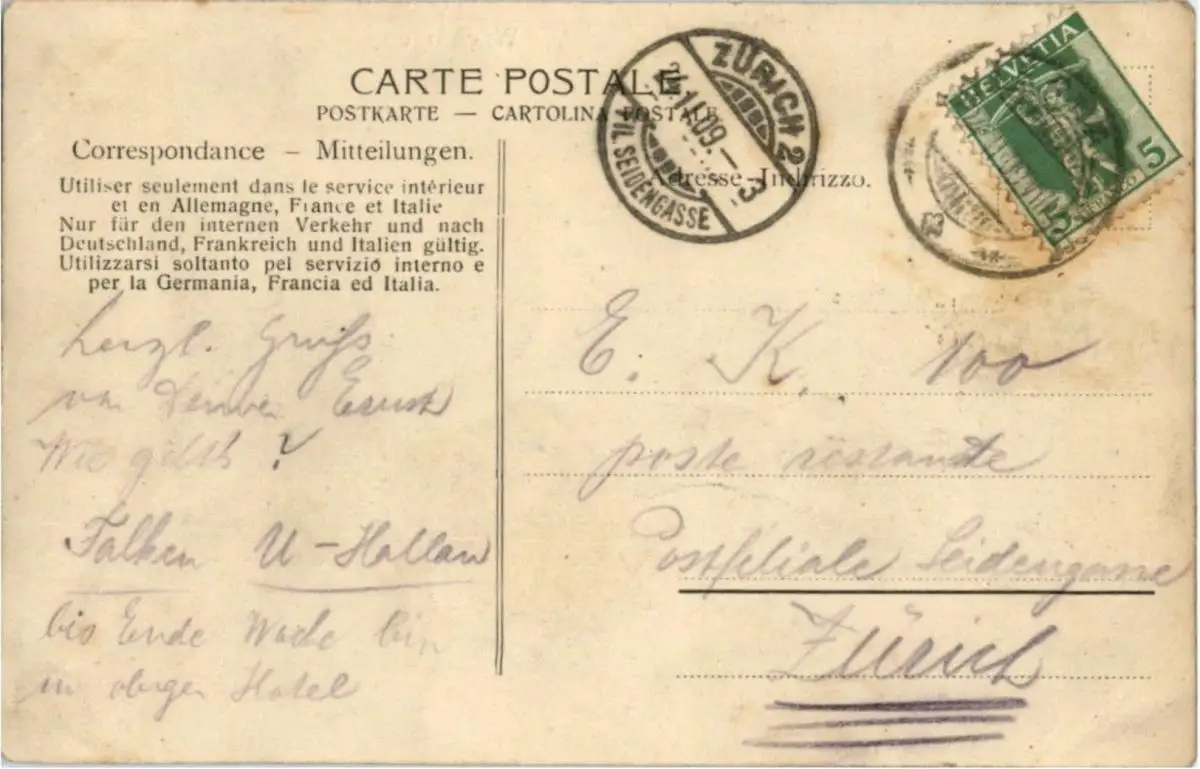 CARTE POSTALE
POSTKARTE — CARTOLINA POSTALE
Correspondance – Mitteilungen.
Utiliser seulement dans le service intérieur
et en Allemagne, France et Italie
Nur für den internen Verkehr und nach
Deutschland, Frankreich und Italien gültig.
Utilizzarsi soltanto pel servizio interno e
per la Germania, Francia ed Italia.
herzl. Gruss
von Deinem Ernst
Wie gehts?
Falken U-Hallau
bis Ende Woche bin
in obigen Hotel
ZÜRICH 2
FIL. SEIDENGASSE
Adresse–Indirizzo.
HELVETIA
5
5
E. K. 100
poste restante
Postfiliale Seidengasse
Zürich